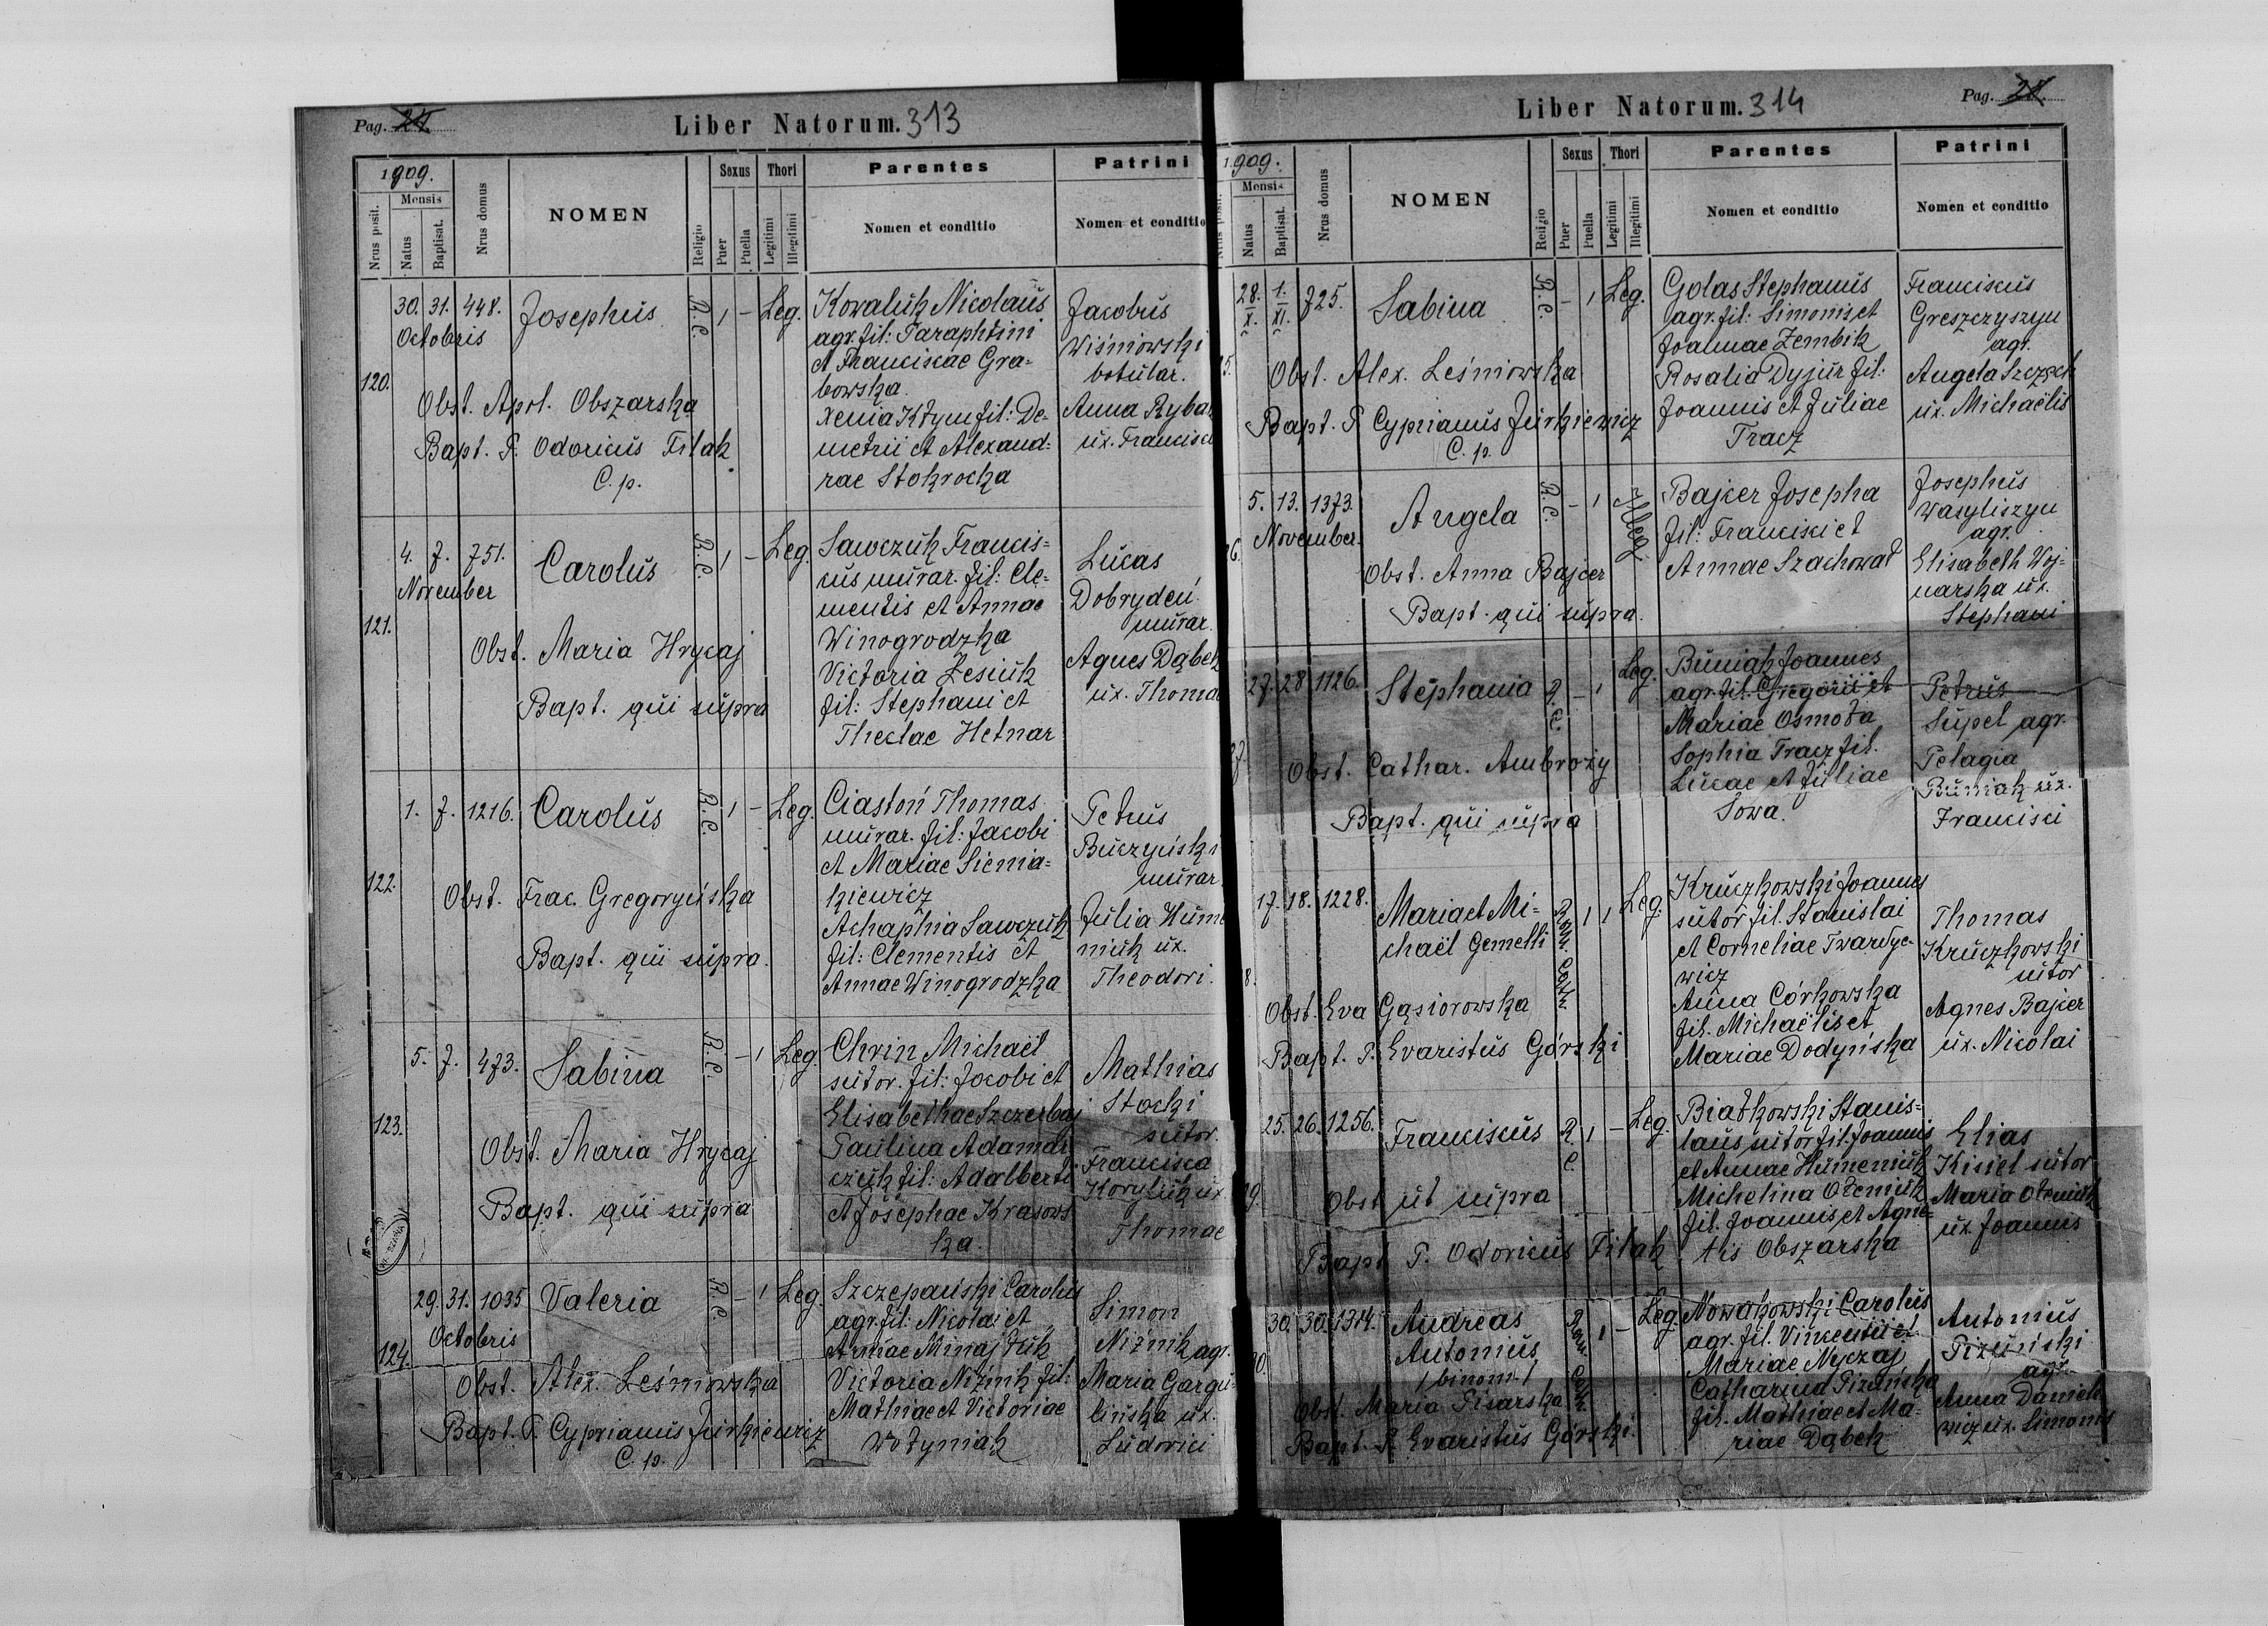 Pag. 24.
Liber Natorum. 313
1909.
Mensis
Nrus posit.
Natus
Baptisat.
Nrus domus
NOMEN
Religio
Sexus
Puer
Puella
Thori
Legitimi
Illegitimi
Parentes
Nomen et conditio
Patrini
Nomen et conditio
120.
30. 31. 448.
Octobris
Josephus
R. C.
1 - Leg.
Kowaluk Nicolaus
agr. fil: Paraphtini
et Franciscae Gra=
bowska
Xenia Kłym fil: De=
metrii et Alexand=
rae Stokrocka
Jacobus
Wiśniowski
botular.
Anna Rybak
ux. Francisci
Obst. Apol. Obszarska
Bapt. P. Odoricus Fitak
C. p.
121.
4. 7. 751.
November
Carolus
R. C.
1 - Leg.
Sawczuk Francis=
cus murar. fil: Cle=
mentis et Annae
Winogrodzka
Victoria Zesiuk
fil: Stephani et
Theclae Hetnar
Lucas
Dobrydeń
murar.
Agnes Dąbek
ux. Thoma
Obst. Maria Hrycaj
Bapt. qui supra
122.
1. 7. 1216.
Carolus
R. C.
1 - Leg.
Ciastoń Thomas
murar. fil: Jacobi
et Mariae Sienia=
kiewicz
Achaphia Sawczuk
fil: Clementis et
Annae Winogrodzka
Petrus
Buczyński
murar.
Julia Hume
niuk ux.
Theodori.
Obst. Frac. Gregoryńska
Bapt. qui supra.
123.
5. 7. 473.
Sabina
R. C.
- 1 Leg.
Chrin Michaël
sutor. fil: Jacobi et
Elisabethae Szczerbaj
Paulina Adamar
czuk fil: Adalberti
et Josephae Krasows
ka.
Mathias
Stocki
sutor.
Francisca
Koryluk ux
Thomae
Obst. Maria Hrycaj
Bapt. qui supra
124.
29. 31. 1035
Octobris
Valeria
R. C.
- 1 Leg.
Szczepański Carolus
agr. fil: Nicolai et
Annae Minajłuk
Victoria Niżnik fil:
Mathiae et Victoriae
Wołyniak
Simon
Niżnik agr.
Maria Gargu=
lińska ux.
Ludovici
Obst. Alex. Leśniowska
Bapt. P. Cyprianus Jurkiewicz
C. p.
Liber Natorum. 314
Pag. 28.
1909.
Mensis
Nrus posit.
Natus
Baptisat.
Nrus domus
NOMEN
Religio
Sexus
Puer
Puella
Thori
Legitimi
Illegitimi
Parentes
Nomen et conditio
Patrini
Nomen et conditio
5.
28. 1. 725.
X. XI.
Sabina
R. C.
- 1 Leg.
Golas Stephanus
agr. fil: Simonis et
Joannae Zembik
Rosalia Dyjur fil:
Joannis et Juliae
Tracz
Franciscus
Greszczyszyn
agr.
Angela Szczęch
ux. Michaëlis
Obst. Alex. Leśniowska
Bapt. P. Cyprianus Jurkiewicz
C. p.
26.
5. 13. 1373.
November.
Angela
R. C.
- 1 Illeg.
Bajcer Josepha
fil: Francisci et
Annae Szachował
Josephus
Wasyliszyn
agr.
Elisabeth Woj=
narska ux.
Stephani
Obst. Anna Bajcer
Bapt. qui supra.
27.
27. 28 1126.
Stephania
R. C.
- 1 Leg.
Buniak Joannes
agr. fil. Gregorii et
Mariae Osmoła
Sophia Tracz fil.
Lucae et Juliae
Sowa.
Petrus
Supel agr.
Pelagia
Buniak ux.
Francisci
Obst. Cathar. Ambroży
Bapt. qui supra
8.
17. 18. 1228.
Maria et Mi=
chaël Gemelli
Rom. Cath.
1 1 Leg.
Kruczkowski Joannes
sutor fil. Stanislai
et Corneliae Twardye=
wicz
Anna Córkowska
fil. Michaëlis et
Mariae Dodyńska
Thomas
Kruczkowski
sutor
Agnes Bajcer
ux. Nicolai
Obst. Eva Gąsiorowska
Bapt. P. Evaristus Górski
29.
25. 26. 1256.
Franciscus
R. C.
1 - Leg.
Białkowski Stanis=
laus sutor fil. Joannis
et Annae Humeniuk
Michelina Ołeniuk
fil. Joannis et Agne=
tis Obszarska
Elias
Kisiel sutor
Maria Ołeniuk
ux Joannis
Obst ut supra
Bapt P. Odoricus Fitak
30.
30. 30. 1314.
Andreas
Antonius
/binom./
Rom. Cath.
1 - Leg.
Nowakowski Carolus
agr. fil. Vincentii et
Mariae Nyczaj
Catharina Pizuńska
fil. Mathiae et Ma=
riae Dąbek
Antonius
Pizuński
agr.
Anna Daniele
wicz ux. Simonis
Obst. Maria Pisarska
Bapt. P. Evaristus Górski.